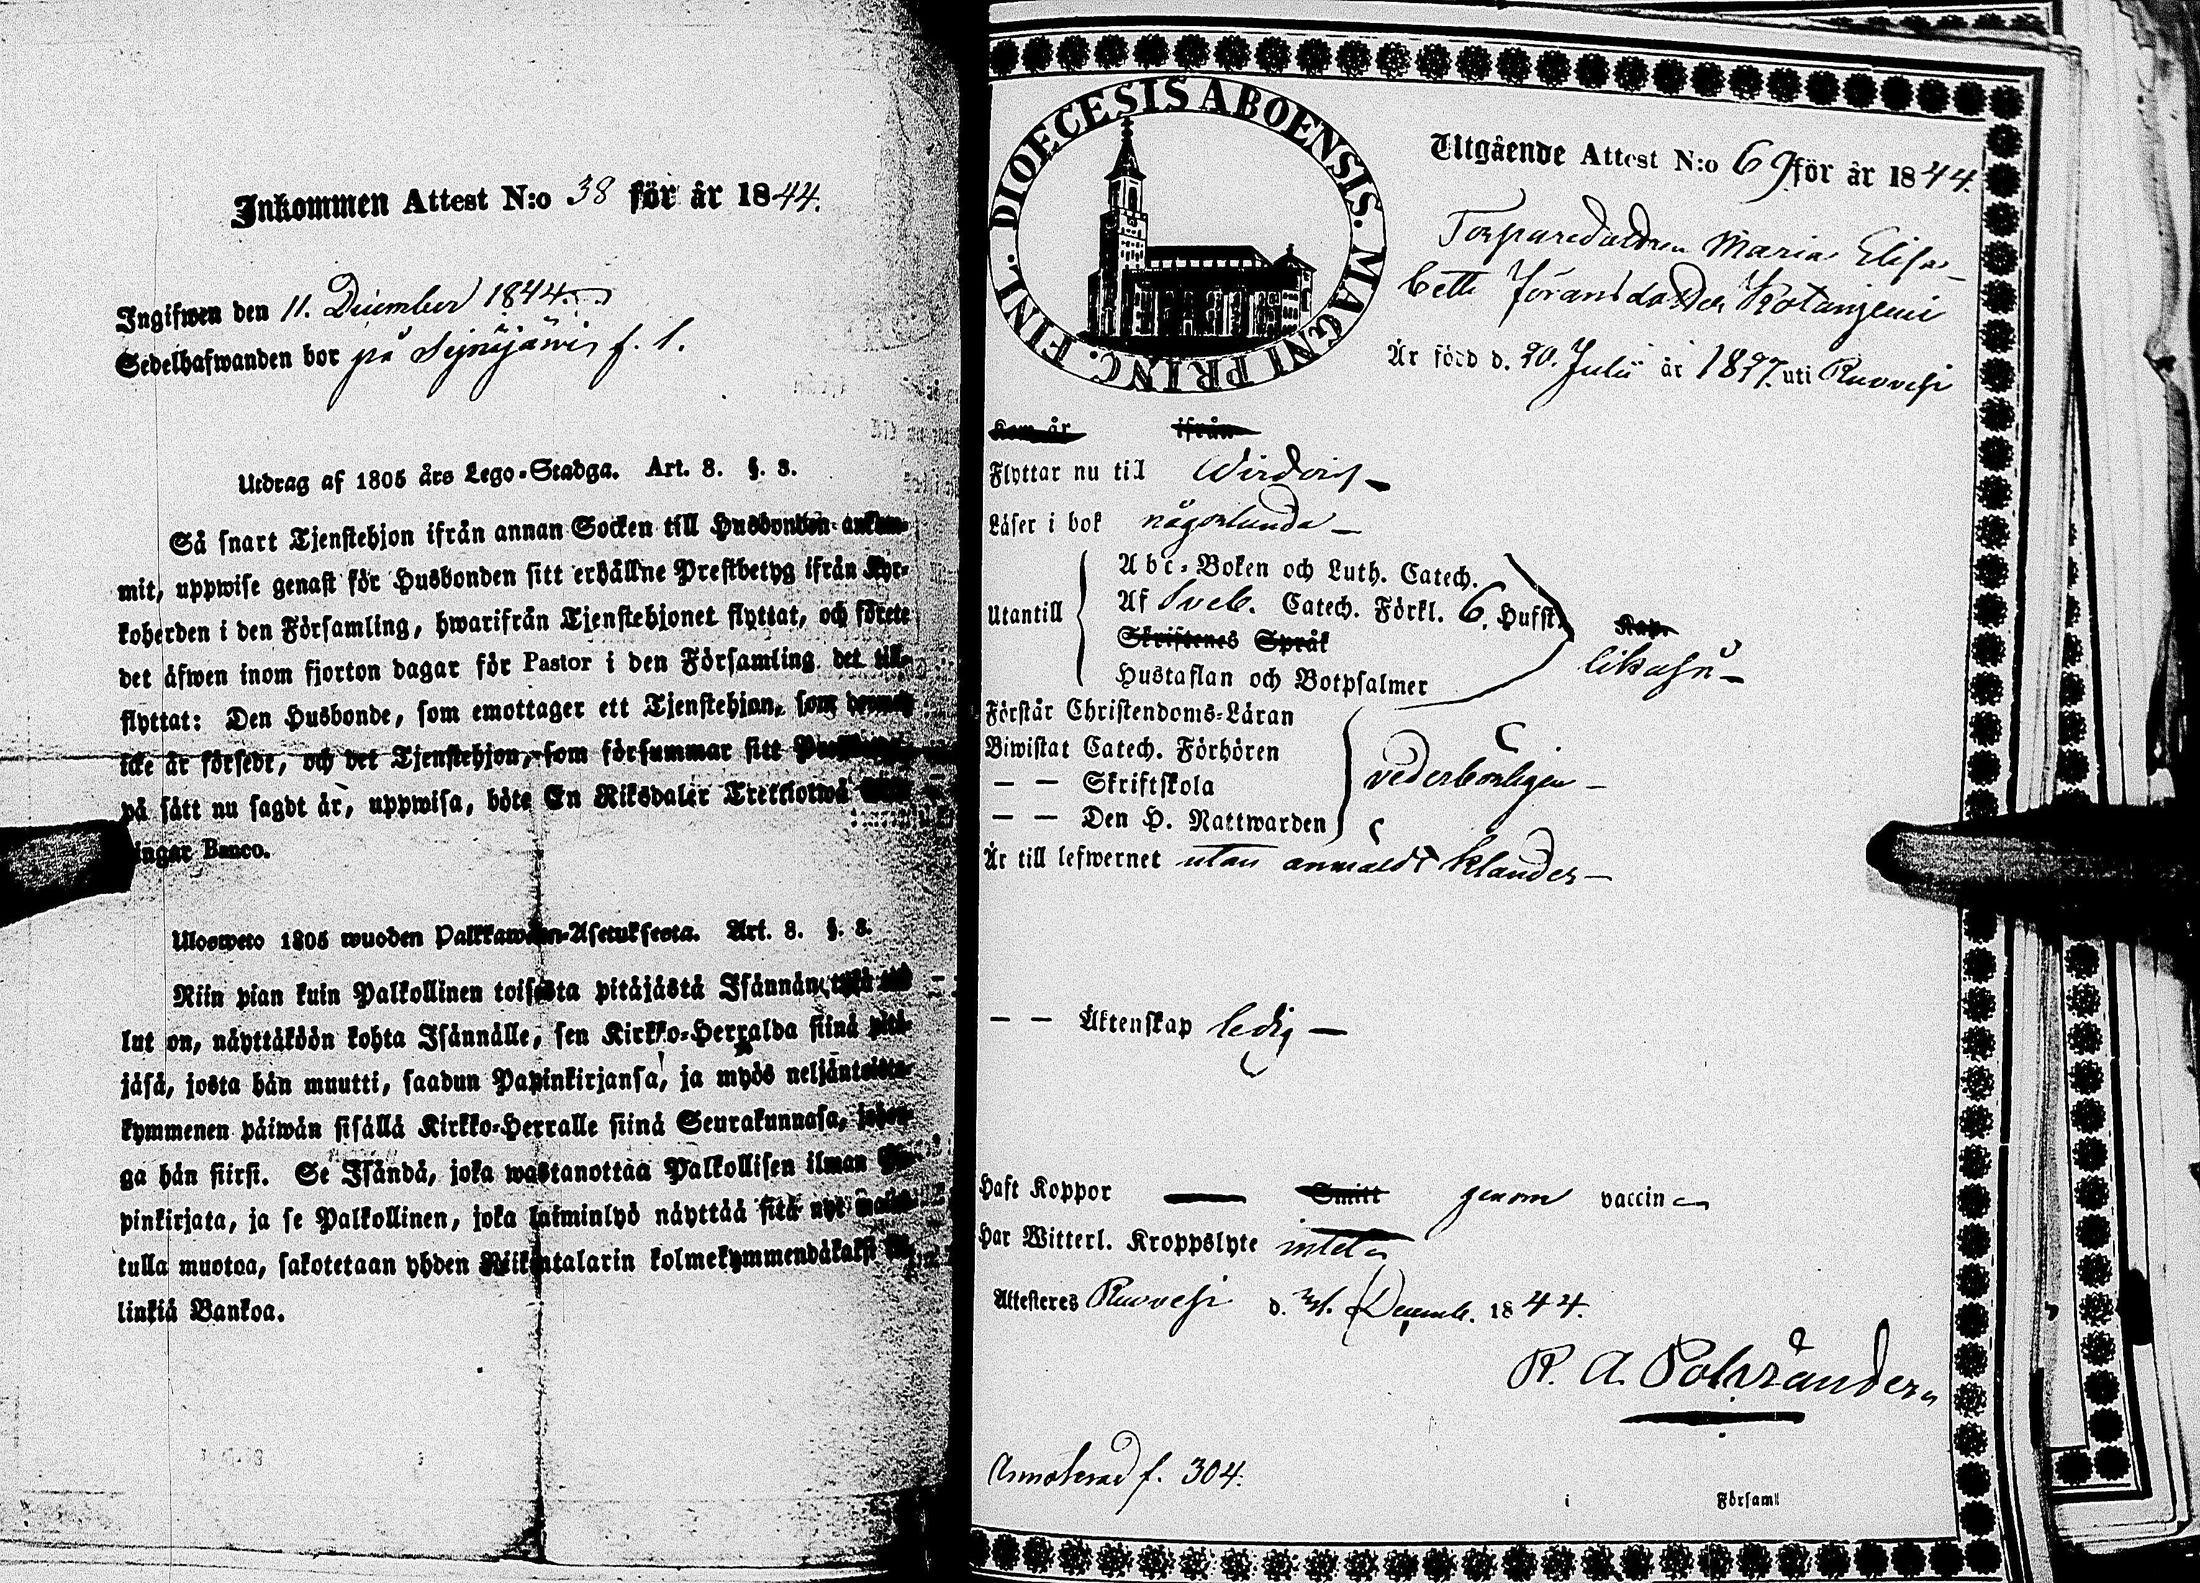 Inkommen Attest N:o 38 för år 1844.
Ingifwen den 11. December 1844.
Sedelhafwanden bor på Sejnäjärvi f. 1.
Utdrag af 1805 års Lego-Stadga. Art. 8. §. 3.
Så snart Tjenstehjon ifrån annan Socken till Husbonden ankom-
mit, uppwise genast för Husbonden sitt erhållne Prestbetyg ifrån Kyr-
koherden i den Församling, hwarifrån Tjenstehjonet flyttat, och förete
det äfwen inom fjorton dagar för Pastor i den Församling det till-
flyttat: Den Husbonde, som emottager ett Tjenstehjon, som
icke är försedt, och det Tjenstehjon, som försummar sitt
på sätt nu sagdt är, uppwisa, böte En Riksdaler Trettiotwå
ingar Banco.
Ulosweto 1805 wuoden Palkkawäen-Asetuksesta. Art. 8. §. 3.
Niin pian kuin Palkollinen toisesta pitäjästä Isännän
lut on, näyttäköön kohta Isännälle, sen Kirkko-Herralda siinä pitä-
jäsä, josta hän muutti, saadun Papinkirjansa, ja myös neljäntoista-
kymmenen päiwän sisällä Kirkko-Herralle siinä Seurakunnasa, johon-
ga hän siirsi. Se Isändä, joka wastanottaa Palkollisen ilman
pinkirjata, ja se Palkollinen, joka laiminlyö näyttää sitä nyt
tulla muotoa, sakotetaan yhden Riikintalarin kolmekymmendäkaksi
linkiä Bankoa.
DIOECESIS ABOENSIS. MAGNI PRINC. FINL.
Utgående Attest N:o 69 för år 1844.
Torparedottren Maria Elisa-
beth Jöransdotter Kotaniemi
Är född d. 20. Julii år 1827. uti Ruovesi
Kom år ifrån
Flyttar nu till Wirdois
Läser i bok någorlunda
Abc-Boken och Luth. Catech.
Utantill Af Sveb. Catech. Förkl. 6. Hufst. Kap.
Skriftenes Språk likaså
Hustaflan och Botpsalmer
Förstår Christendoms-Läran
Biwistat Catech. Förhören
— — Skriftskola vederbörligen
— — Den H. Nattwarden
Är till lefwernet utan anmäldt klander
— — Äktenskap ledig
Haft Koppor Smitt genom vaccin
Har Witterl. Kroppslyte intet
Attesteres Ruovesi d. Decemb. 1844.
Annoterad f. 304.
i Församl